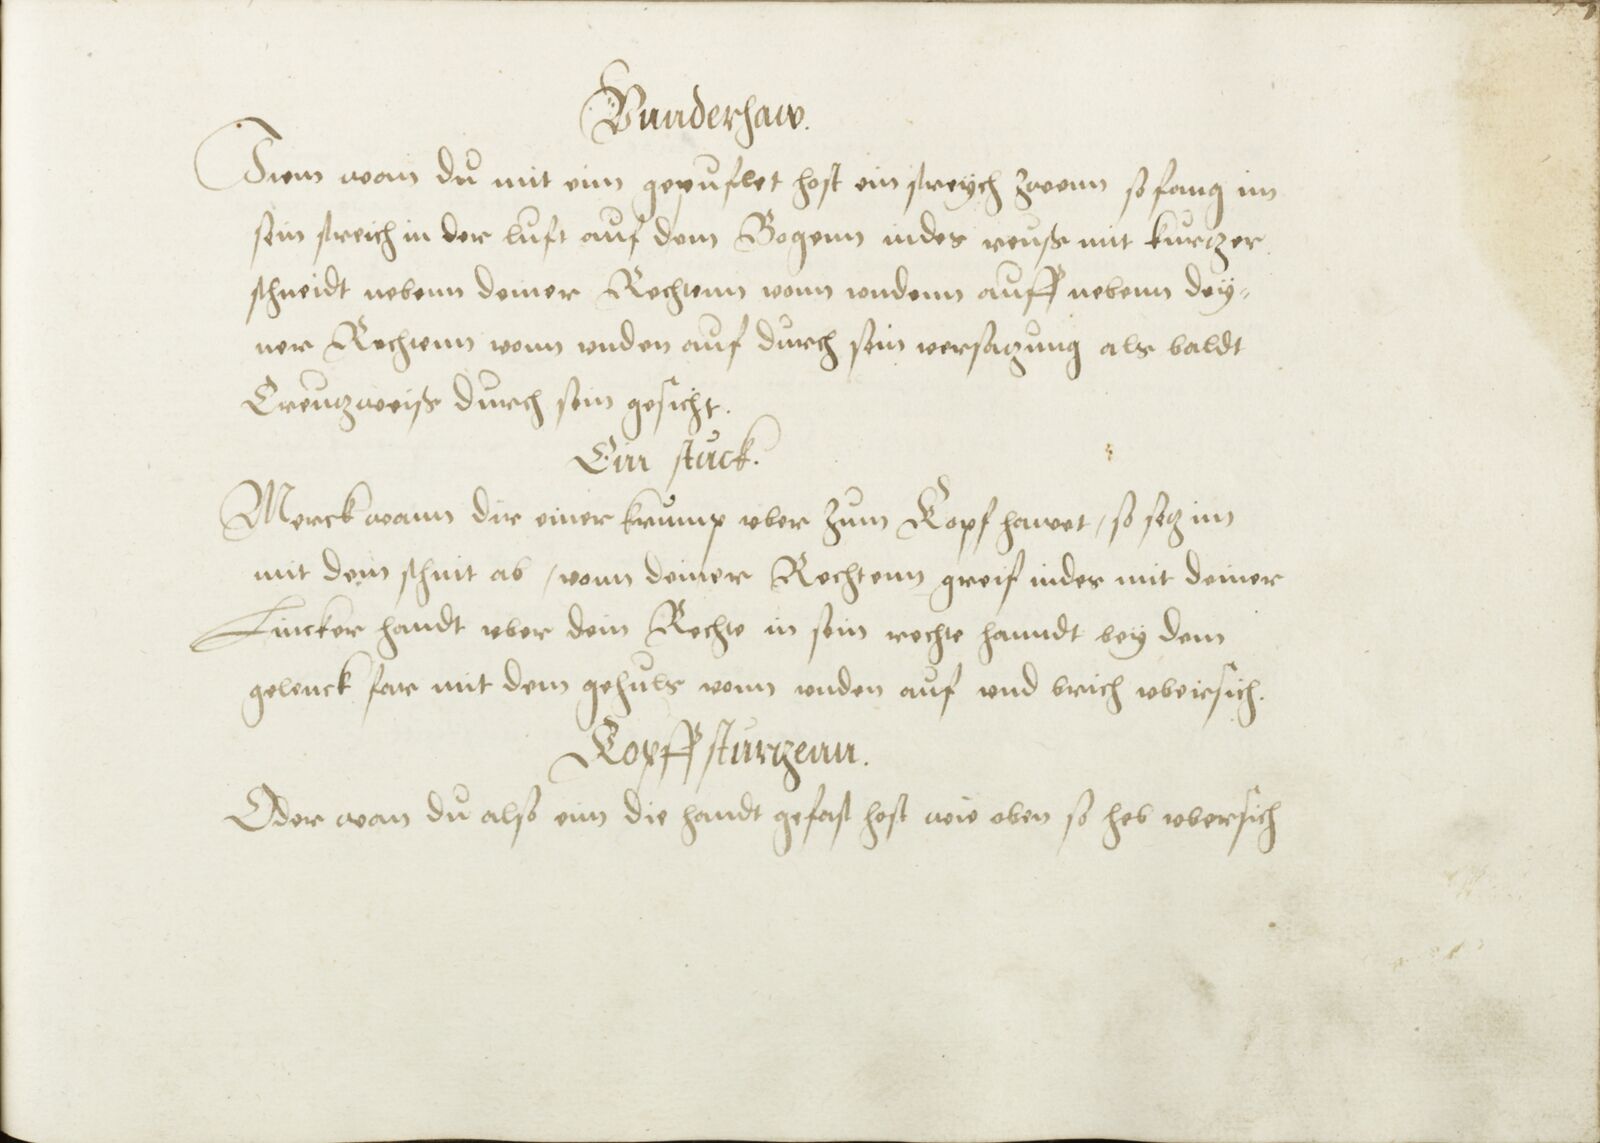 Wunderhaw.
Item wan du mit eim gepuflet hast ein streych zwenn so fang im
sein streich in der luft auf dem Bogenn indes reuß mit kurtzer
schneidt nebenn deiner Rechtenn vonn vndenn auff nebenn dey=
ner Rechtenn vonn vnden auf durch sein versatzung als baldt
Creutzweiß durch sein gesicht.
Ein stuck.
Merck wann dir einer krump vber zum Kopf hawet / so setz im
mit dem schnit ab / vonn deiner Rechtenn greif indes mit deiner
Lincker handt vber dein Rechte in sein rechte hanndt bey dem
gelenck far mit dem gehultz vonn vnden auf vnd brich vbersich.
Kopff sturtzenn.
Oder wan du also eim die handt gefast hast wie oben so heb vbersich